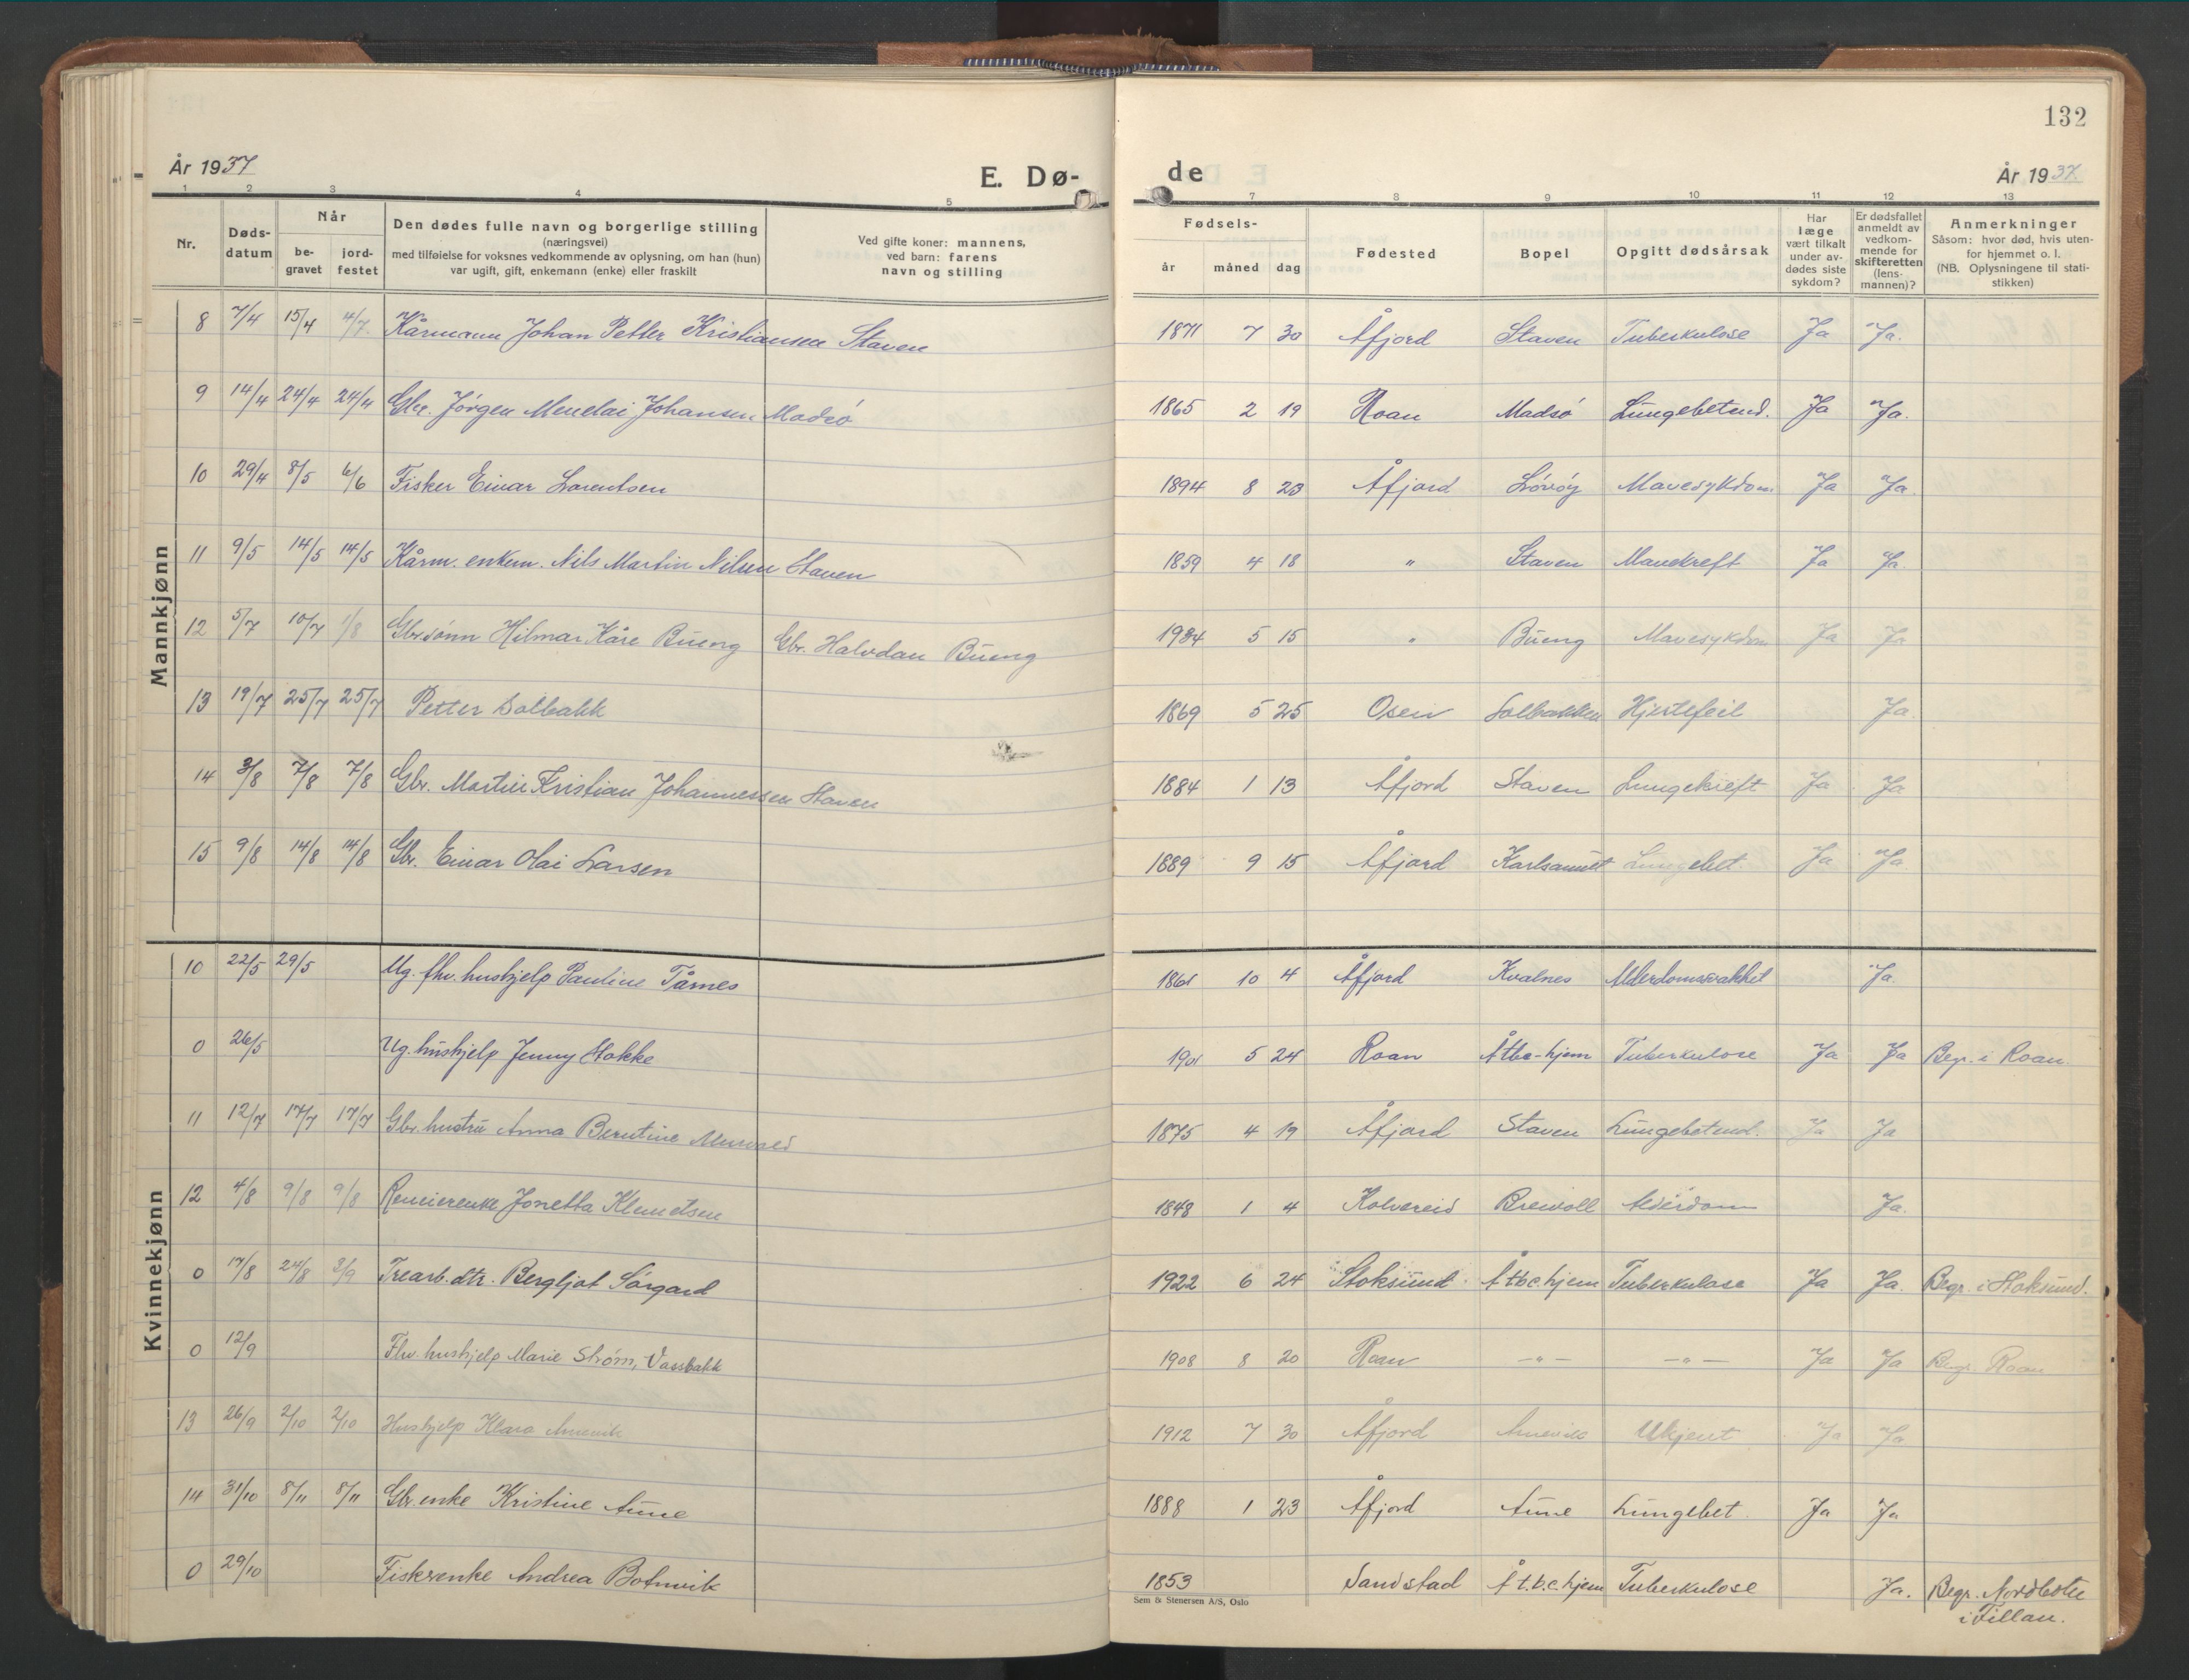 132
År 1937
E. Dø-
de
År 1937.
1 2 3 4 5 7 8 9 10 11 12 13
Nr.
Døds-
datum
Når
be-
gravet
jord-
festet
Den dødes fulle navn og borgerlige stilling
(næringsvei)
med tilføielse for voksnes vedkommende av oplysning, om han (hun)
var ugift, gift, enkemann (enke) eller fraskilt
Ved gifte koner: mannens,
ved barn: farens
navn og stilling
Fødsels-
år måned dag
Fødested
Bopel
Opgitt dødsårsak
Har
læge
vært tilkalt
under av-
dødes siste
sykdom?
Er dødsfallet
anmeldt av
vedkom-
mende for
skifteretten
(lens-
mannen)?
Anmerkninger
Såsom: hvor død, hvis uten-
for hjemmet o. l.
(NB. Oplysningene til stati-
stikken)
Mannkjønn
8 7/4 15/4 4/7 Kårmann Johan Petter Kristiansen Staven 1871 7 30 Åfjord Staven Tuberkulose Ja Ja.
9 14/4 24/4 24/4 Gbr. Jørgen Menelai Johansen Madsø 1865 2 19 Roan Madsø Lungebetend. Ja Ja.
10 29/4 8/5 6/6 Fisker Einar Lorentsen 1894 8 23 Åfjord Løvøy Mavesykdom Ja Ja.
11 9/5 14/5 14/5 Kårm. enkem. Nils Martin Nilsen Staven 1859 4 18 " Staven Mavekreft Ja Ja.
12 5/7 10/7 1/8 Gbr.sønn Hilmar Kåre Bueng Gbr. Halvdan Bueng 1934 5 15 " Bueng Mavesykdom Ja Ja
13 19/7 25/7 25/7 Petter Solbakk 1869 5 25 Osen Solbakken Hjertefeil Ja.
14 3/8 7/8 7/8 Gbr. Martin Kristian Johannessen Staven 1884 1 13 Åfjord Staven Lungekreft Ja Ja
15 9/8 14/8 14/8 Gbr. Einar Olai Larsen 1889 9 15 Åfjord Karlsaunet Lungebet. Ja Ja.
Kvinnekjønn
10 22/5 29/5 Ug. fhv. hushjelp Pauline Tårnes 1861 10 4 Åfjord Kvalnes Alderdomsvakhet Ja.
0 26/5 Ug. hushjelp Jenny Stokke 1901 5 24 Roan Å tbc-hjem Tuberkulose Ja Ja Begr. i Roan.
11 12/7 17/7 17/7 Gbr. hustru Anna Berntine 1875 4 19 Åfjord Staven Lungebetend. Ja Ja
12 4/8 9/8 9/8 Jonetta Klemetsen 1848 1 4 Kolvereid Breivoll Alderdom Ja.
0 17/8 24/8 3/9 Trearb.dtr. Bergljot Sørgard 1922 6 24 Stoksund Å tbc.hjem Tuberkulose Ja Ja. Begr. i Stoksund.
0 12/9 Fhv. hushjelp Marie Strøm, Vassbakk 1908 8 20 Roan —"— —"— Ja Ja Begr. Roan
13 26/9 2/10 2/10 Hushjelp Klara 1912 7 30 Åfjord Ukjent Ja Ja
14 31/10 8/11 8/11 Gbr.enke Kristine Aune 1888 1 23 Åfjord Aune Lungebet Ja Ja
0 29/10 Fiskerenke Andrea Botnvik 1853 Sandstad Å t.b.c.hjem Tuberkulose Ja. Begr. Nordbotn
i Fillan.
Sem & Stenersen A/S, Oslo